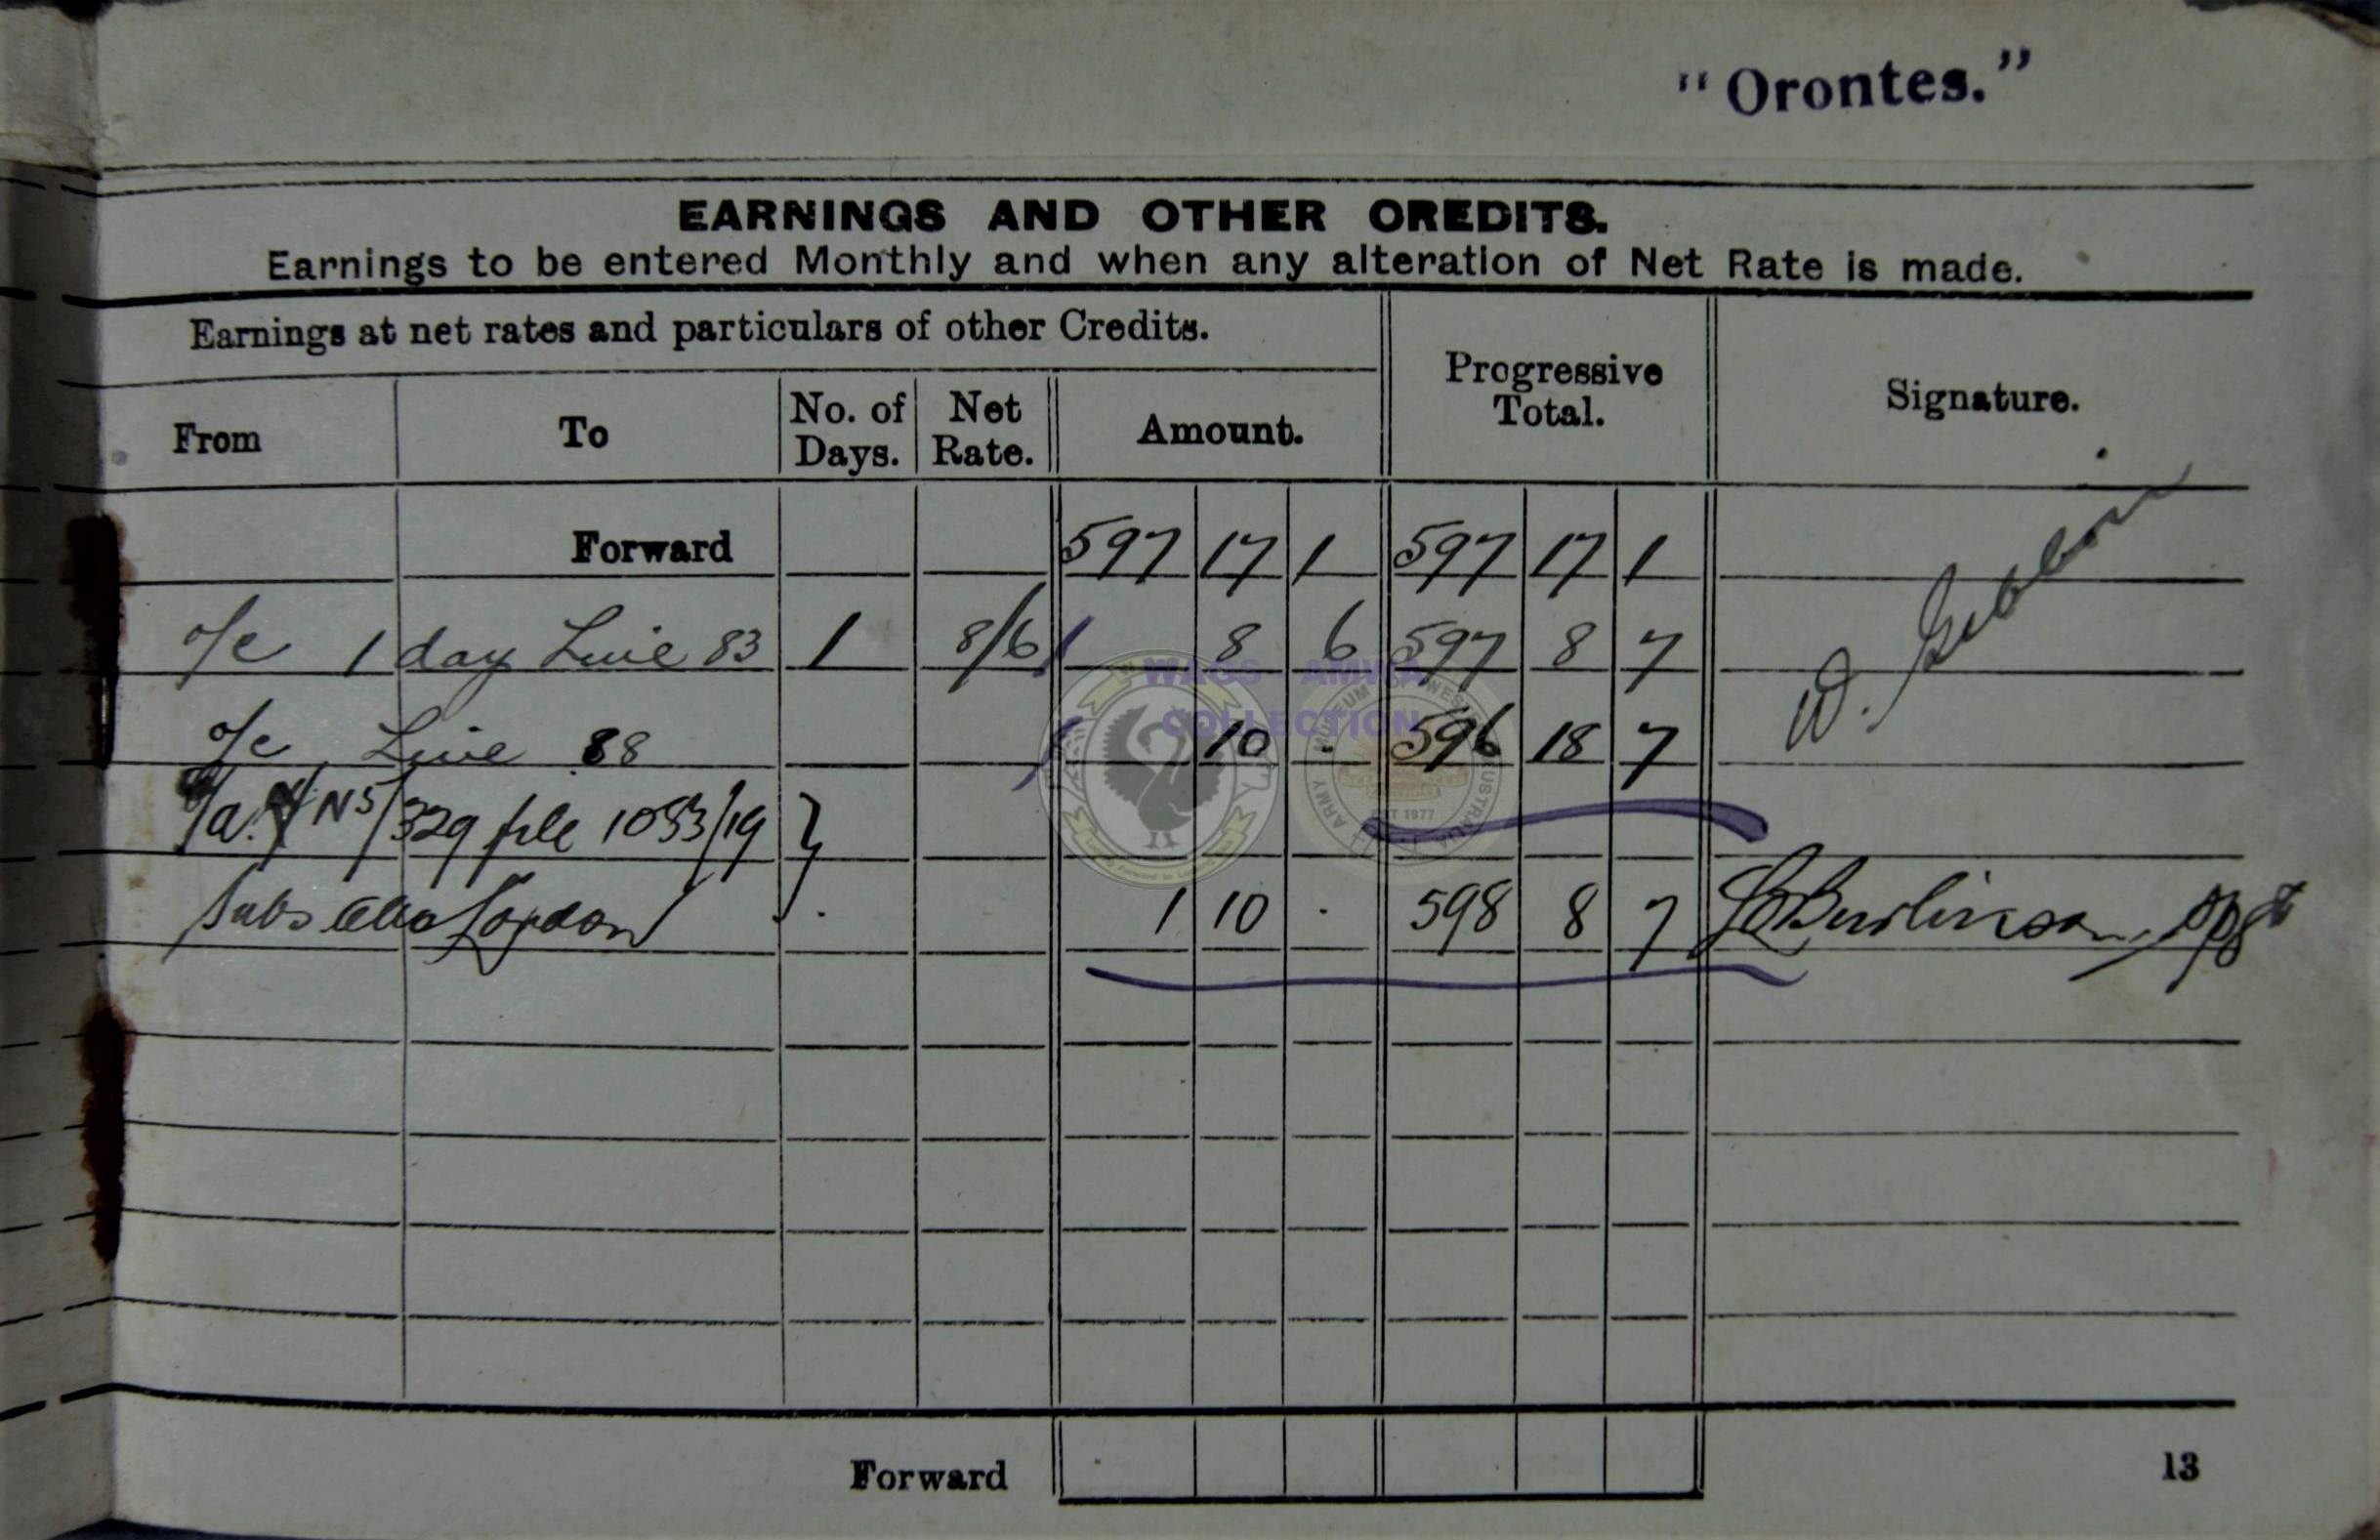 "Orontes."
EARNINGS AND OTHER CREDITS.
Earnings to be entered Monthly and when any alteration of Net Rate is made.
Earnings at net rates and particulars of other Credits.
Progressive Total.
Signature.
From To No. of Days. Net Rate. Amount.
Forward 597 17 1 597 17 1
o/c 1 day Line 83 1 8/6 8 6 597 8 7
W.
o/c Line 88 10 - 596 18 7
NS/329 file 1083/19 }
Subs London 1 10 - 598 8 7
WAGS - AMWA
COLLECTION
Forward
13